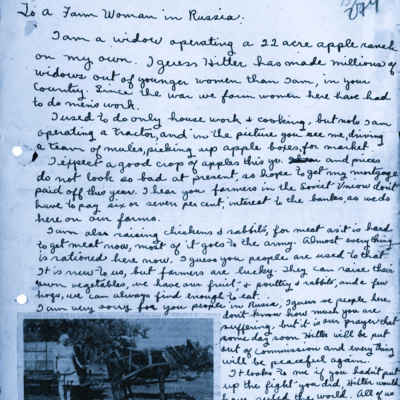 To a Farm Woman in Russia:
I am a widow operating a 22 acre apple ranch
on my own. I guess Hitler has made millions of
widows out of younger women than I am, in your
Country. Since the war we farm women here have had
to do men's work.
I used to do only house work & cooking, but now I am
operating a tractor, and in the picture you see me, driving
a team of mules, picking up apple boxes, for market.
I expect a good crop of apples this yr. and prices
do not look so bad at present, so hope to get my mortgage
paid off this year. I hear you farmers in the Soviet Union don't
have to pay six or seven per cent, interest to the banks, as we do
here on our farms.
I am also raising chickens & rabbits, for meat as it is hard
to get meat now, most of it goes to the army. Almost everything
is rationed here now. I guess you people are used to that.
It is new to us, but farmers are lucky. They can raise their
own vegetables, we have our fruit & poultry & rabbits, and a few
hogs, we can always find enough to eat.
I am very sorry for you people in Russia, I guess we people here
don't know how much you are
suffering. but it is our prayer that
some day soon Hitler will be put
out of commission and everything
will be peaceful again.
It looks to me if you hadn't put
up the fight you did, Hitler would
have ruled the world. All of us